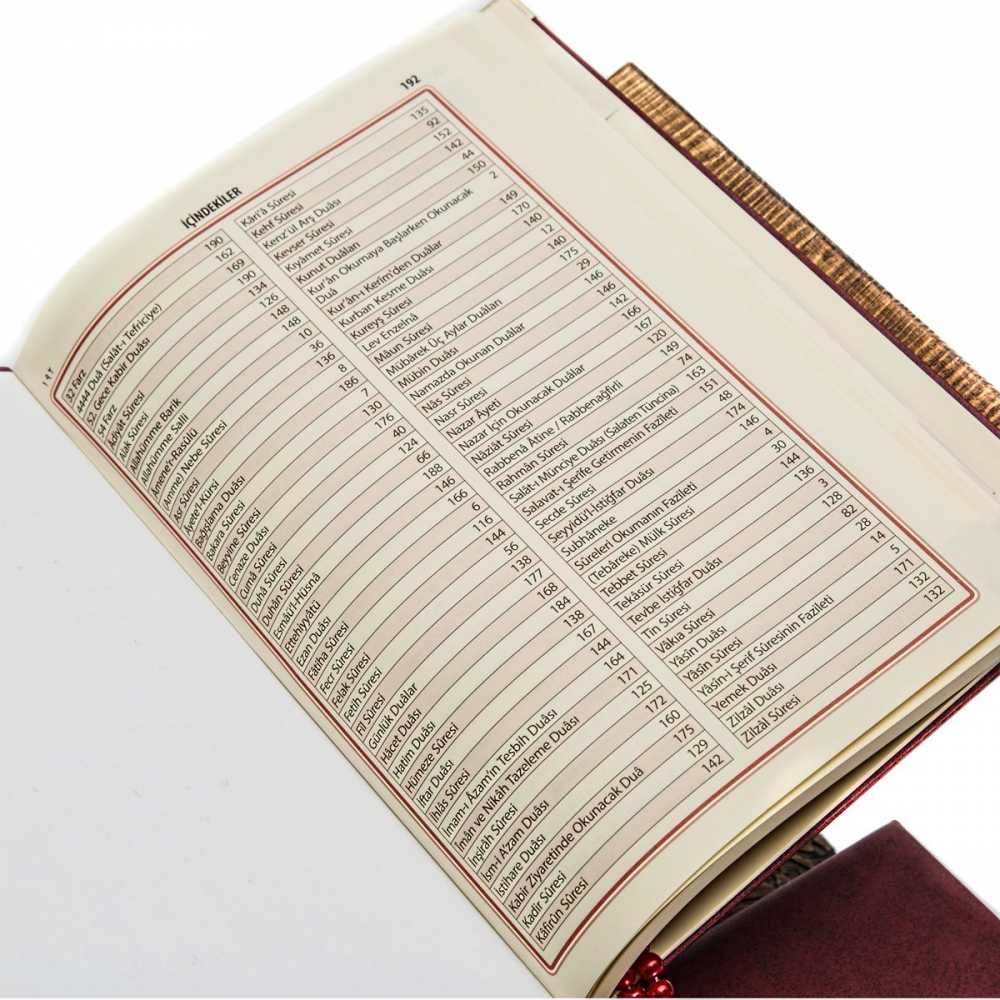 192
İÇİNDEKİLER
32 Farz 190
4444 Duâ (Salât-ı Tefriciye) 162
52. Gece Kabir Duâsı 169
54 Farz 190
Âdiyât Sûresi 134
Alak Sûresi 126
Allahümme Barik 148
Allahümme Salli 148
Âmene'r-Rasûlü 10
(Amme) Nebe Sûresi 36
Asr Sûresi 136
Âyete'l-Kürsi 8
Bağışlama Duâsı 186
Bakara Sûresi 7
Beyyine Sûresi 130
Cenaze Duâsı 176
Cumâ Sûresi 40
Duhâ Sûresi 124
Duhân Sûresi 66
Esmâü'l-Hüsnâ 188
Ettehiyyâtü 146
Ezan Duâsı 166
Fâtiha Sûresi 6
Fecr Sûresi 116
Felak Sûresi 144
Feth Sûresi 56
Fil Sûresi 138
Günlük Duâlar 177
Hâcet Duâsı 168
Hatim Duâsı 184
Hümeze Sûresi 138
İftar Duâsı 167
İhlâs Sûresi 144
İmam-ı Âzam'ın Tesbih Duâsı 164
İmân ve Nikâh Tazeleme Duâsı 171
İnşirâh Sûresi 125
İsm-i A'zam Duâsı 172
İstihare Duâsı 160
Kabir Ziyaretinde Okunacak Duâ 175
Kadir Sûresi 129
Kâfirûn Sûresi 142
Kâri'â Sûresi 135
Kehf Sûresi 92
Kenz'ül Arş Duâsı 152
Kevser Sûresi 142
Kıyâmet Sûresi 44
Kunut Duâları 150
Kur'ân Okumaya Başlarken Okunacak 2
Duâ
Kur'ân-ı Kerim'den Duâlar 149
Kurban Kesme Duâsı 170
Kureyş Sûresi 140
Lev Enzelnâ 12
Mâun Sûresi 140
Mübârek Üç Aylar Duâları 175
Mübin Duâsı 29
Namazda Okunan Duâlar 146
Nâs Sûresi 146
Nasr Sûresi 142
Nazar Âyeti 166
Nazar İçin Okunacak Duâlar 167
Nâziât Sûresi 120
Rabbenâ Âtine / Rabbenağfirli 149
Rahmân Sûresi 74
Salât-ı Münciye Duâsı (Salaten Tüncina) 163
Salavat-ı Şerife Getirmenin Fazileti 151
Secde Sûresi 48
Seyyidü'l-İstiğfar Duâsı 174
Subhâneke 146
Sûreleri Okumanın Fazileti 4
(Tebâreke) Mülk Sûresi 30
Tebbet Sûresi 144
Tekâsür Sûresi 136
Tevbe İstiğfar Duâsı 3
Tîn Sûresi 128
Vâkıa Sûresi 82
Yâsin Duâsı 28
Yâsin Sûresi 14
Yâsin-i Şerif Sûresinin Fazileti 5
Yemek Duâsı 171
Zilzâl Duâsı 132
Zilzâl Sûresi 132
١٩٢